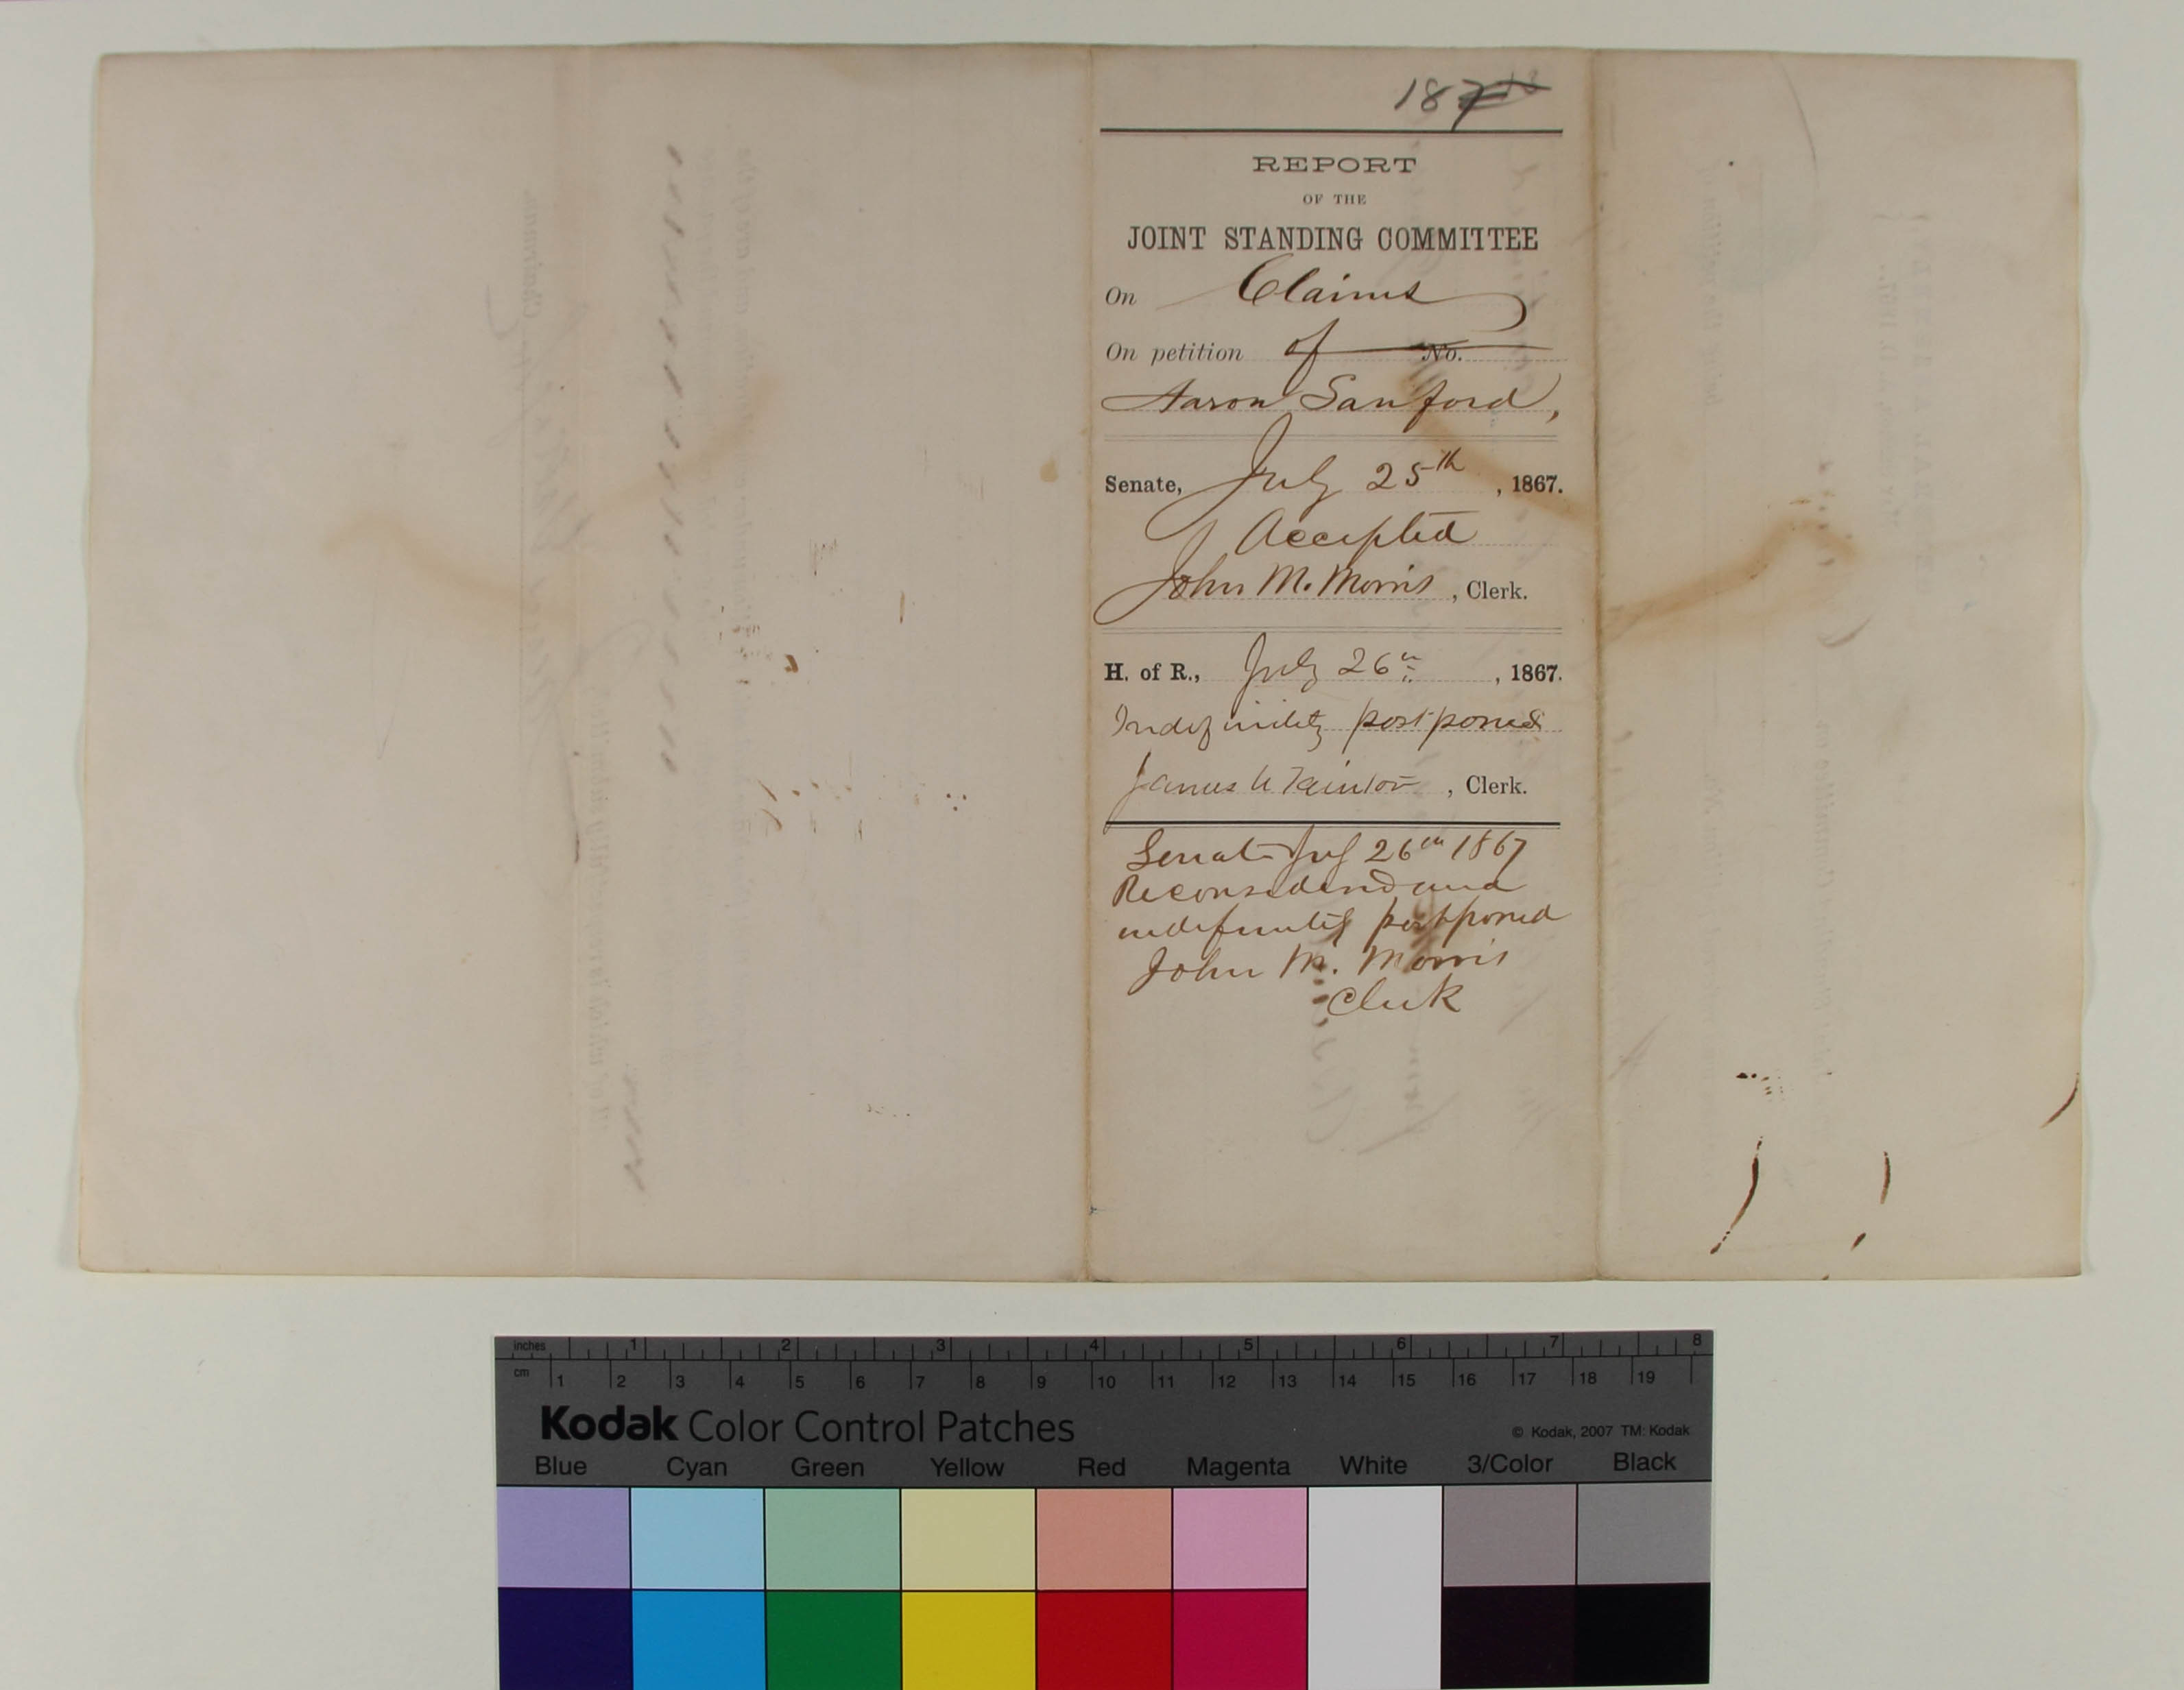 187
REPORT
OF THE
JOINT STANDING COMMITTEE
On Claims
On petition of No.
Aaron Sanford,
Senate, July 25th, 1867.
Accepted
John M. Morris, Clerk.
H. of R., July 26th, 1867.
Indefinitely postponed
James U Taintor, Clerk.
Senate July 26th 1867
Reconsidered and
indefinitely postponed
John M. Morris
Clerk
inches 1 2 3 4 5 6 7 8
cm 1 2 3 4 5 6 7 8 9 10 11 12 13 14 15 16 17 18 19
Kodak Color Control Patches © Kodak, 2007 TM: Kodak
Blue Cyan Green Yellow Red Magenta White 3/Color Black